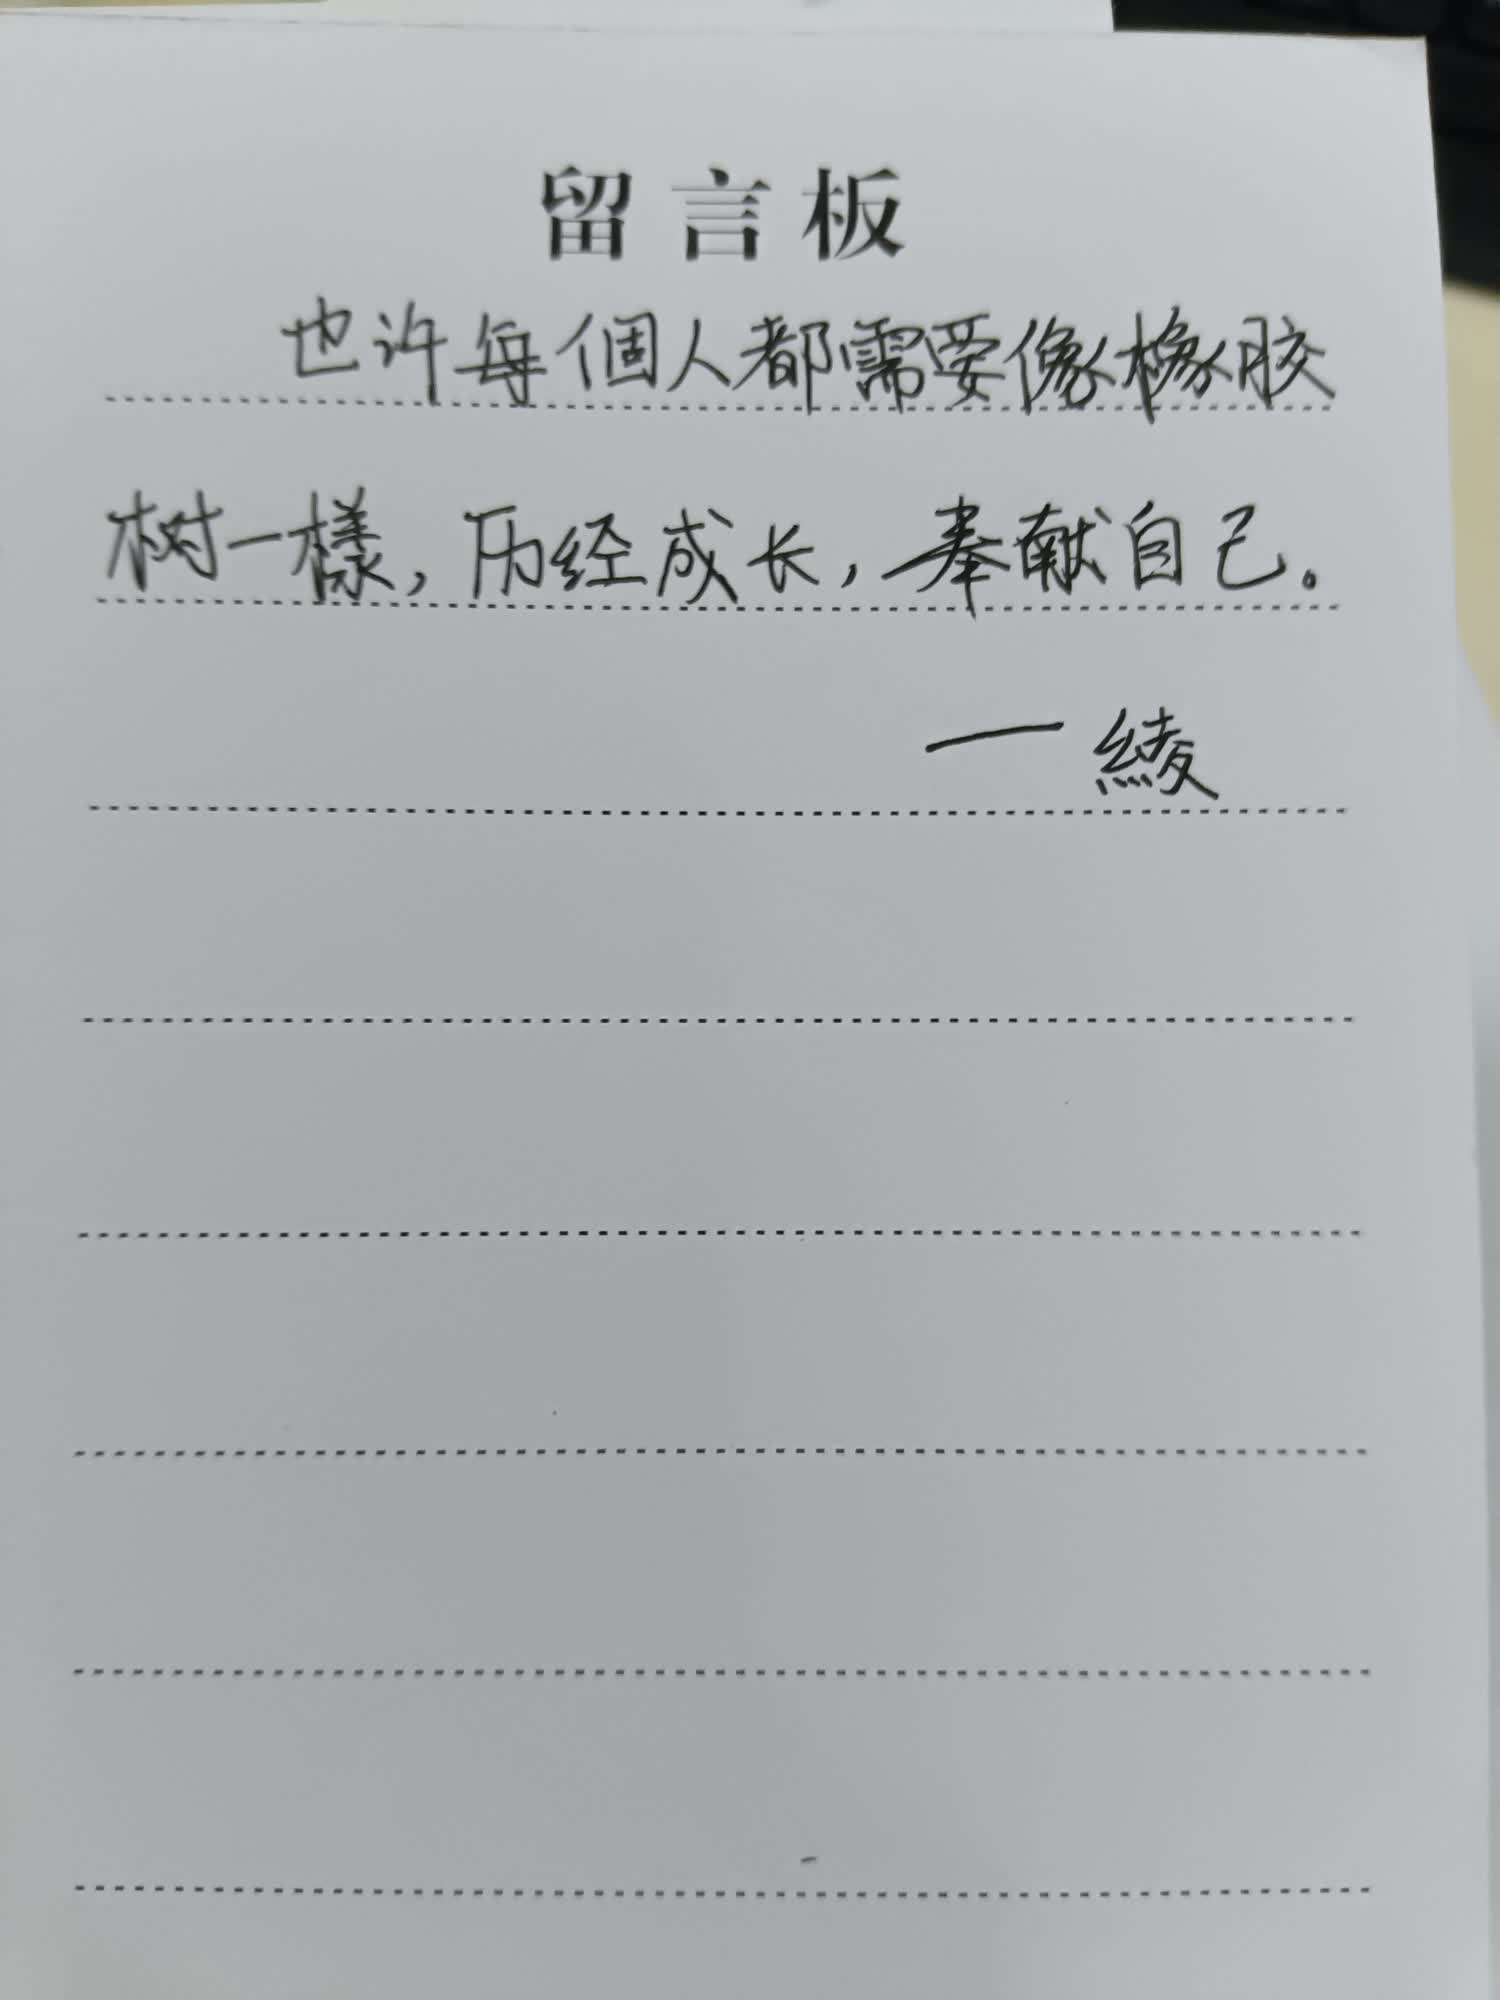 留言板
也许每個人都需要像橡胶
树一樣，历经成长，奉献自己。
一綾